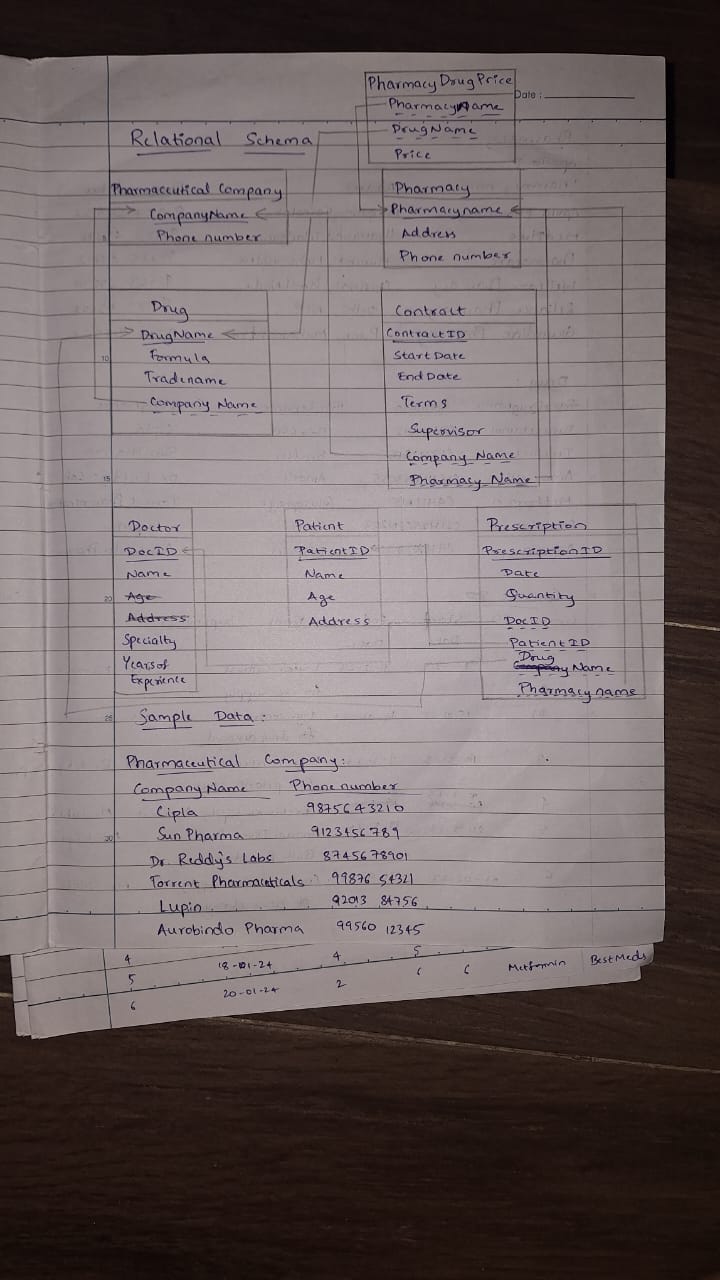 Pharmacy Drug Price
Date :
Pharmacy Name
DrugName
Price
Relational Schema
Pharmaceutical Company
CompanyName
Phone number
Pharmacy
Pharmacyname
Address
Phone number
Drug
DrugName
Formula
Tradename
Company Name
Contract
ContractID
Start Date
End Date
Terms
Supervisor
Company Name
Pharmacy Name
Doctor
DocID
Name
Age
Address
Specialty
Years of
Experience
Patient
PatientID
Name
Age
Address
Prescription
PrescriptionID
Date
Quantity
DocID
PatientID
Drug
Company Name
Pharmacy name
Sample Data :
Pharmaceutical Company:
Company Name Phone number
Cipla 9875643210
Sun Pharma 9123456789
Dr. Reddy's Labs 8745678901
Torrent Pharmaceuticals 99876 54321
Lupin 92013 84756
Aurobindo Pharma 99560 12345
4 18-01-24 4 5
5 20-01-24 2 6 6 Metformin BestMeds
6